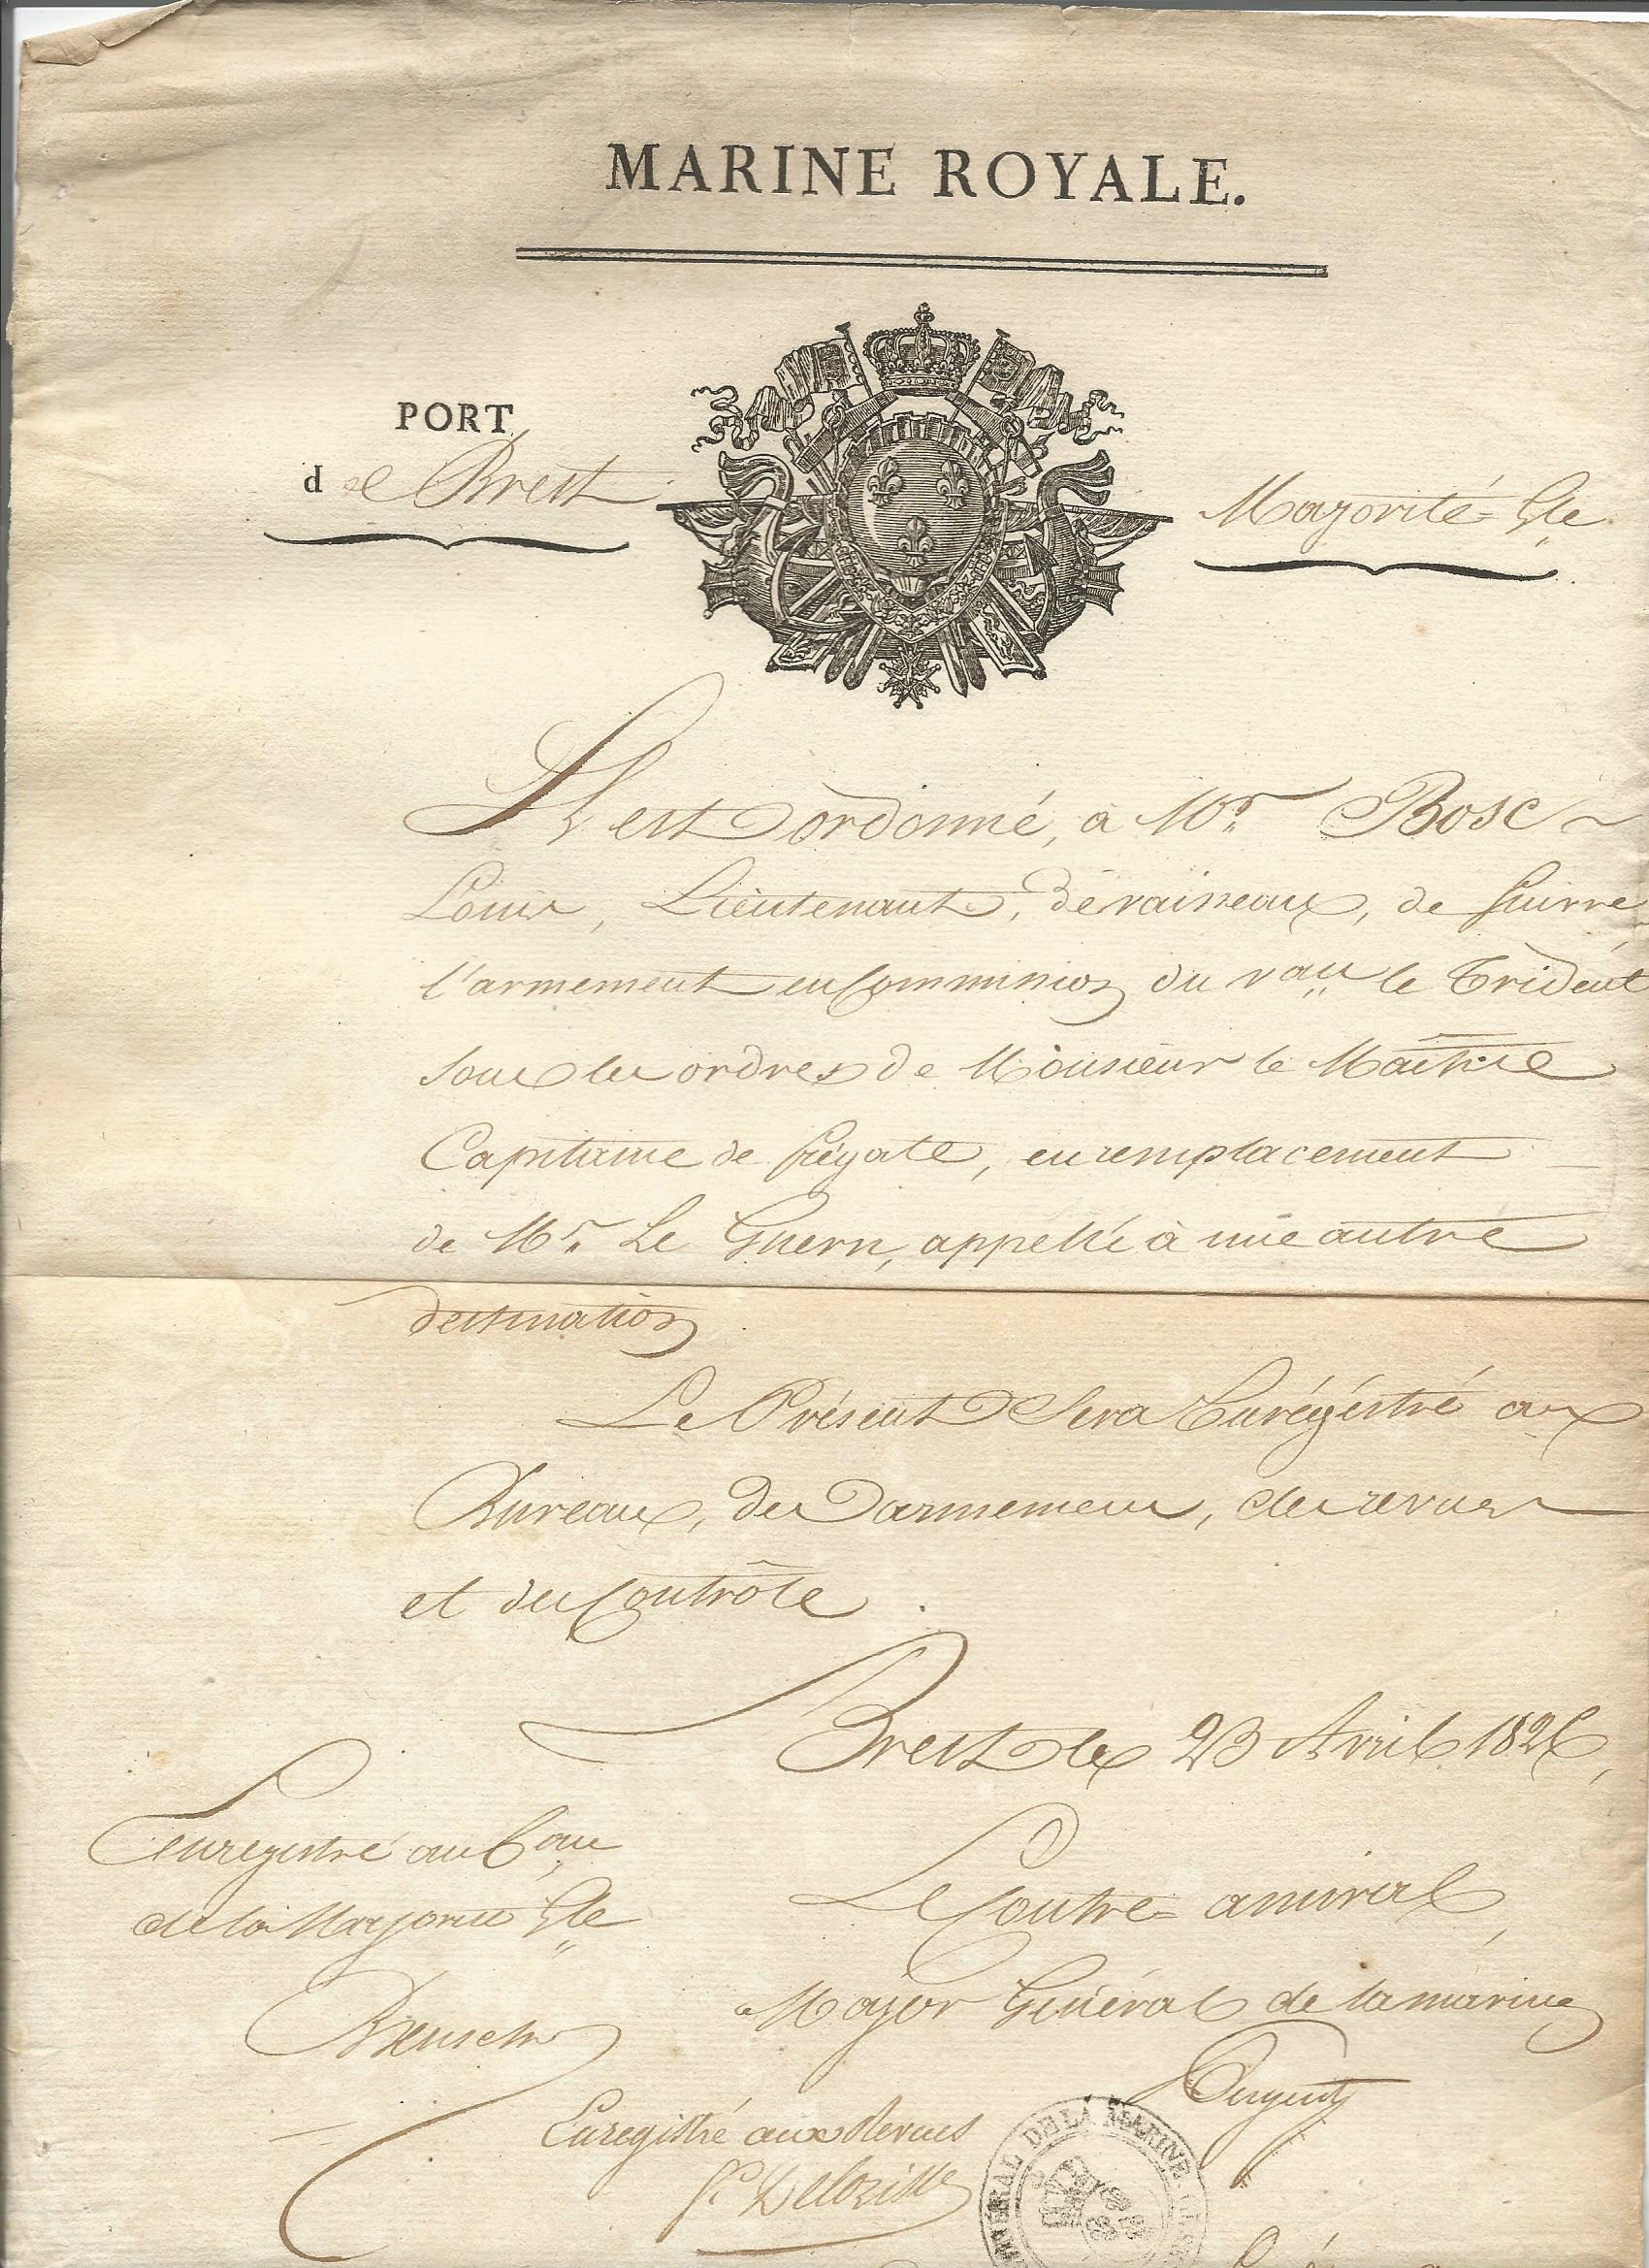 MARINE ROYALE.
PORT
de Brest
Majorité Gle
Il est ordonné, à Mr. Bosc
Louis, Lieutenant, de vaisseau, de suivre
l'armement en Commission du vau le Trident
sous les ordres de Monsieur le Maître
Capitaine de frégate, en remplacement
de Mr. Le Guern, appellé à une autre
destination
Le Présent Sera Enrégistré aux
Bureaux, des armemens, des revues
et du Contrôle.
Brest le 23 Avril 1826,
Enregistré au Bau
de la Majorité Gle
Le Contre=amiral,
Major Général de la marine
Enregistré aux Revues
DE LA MARINE